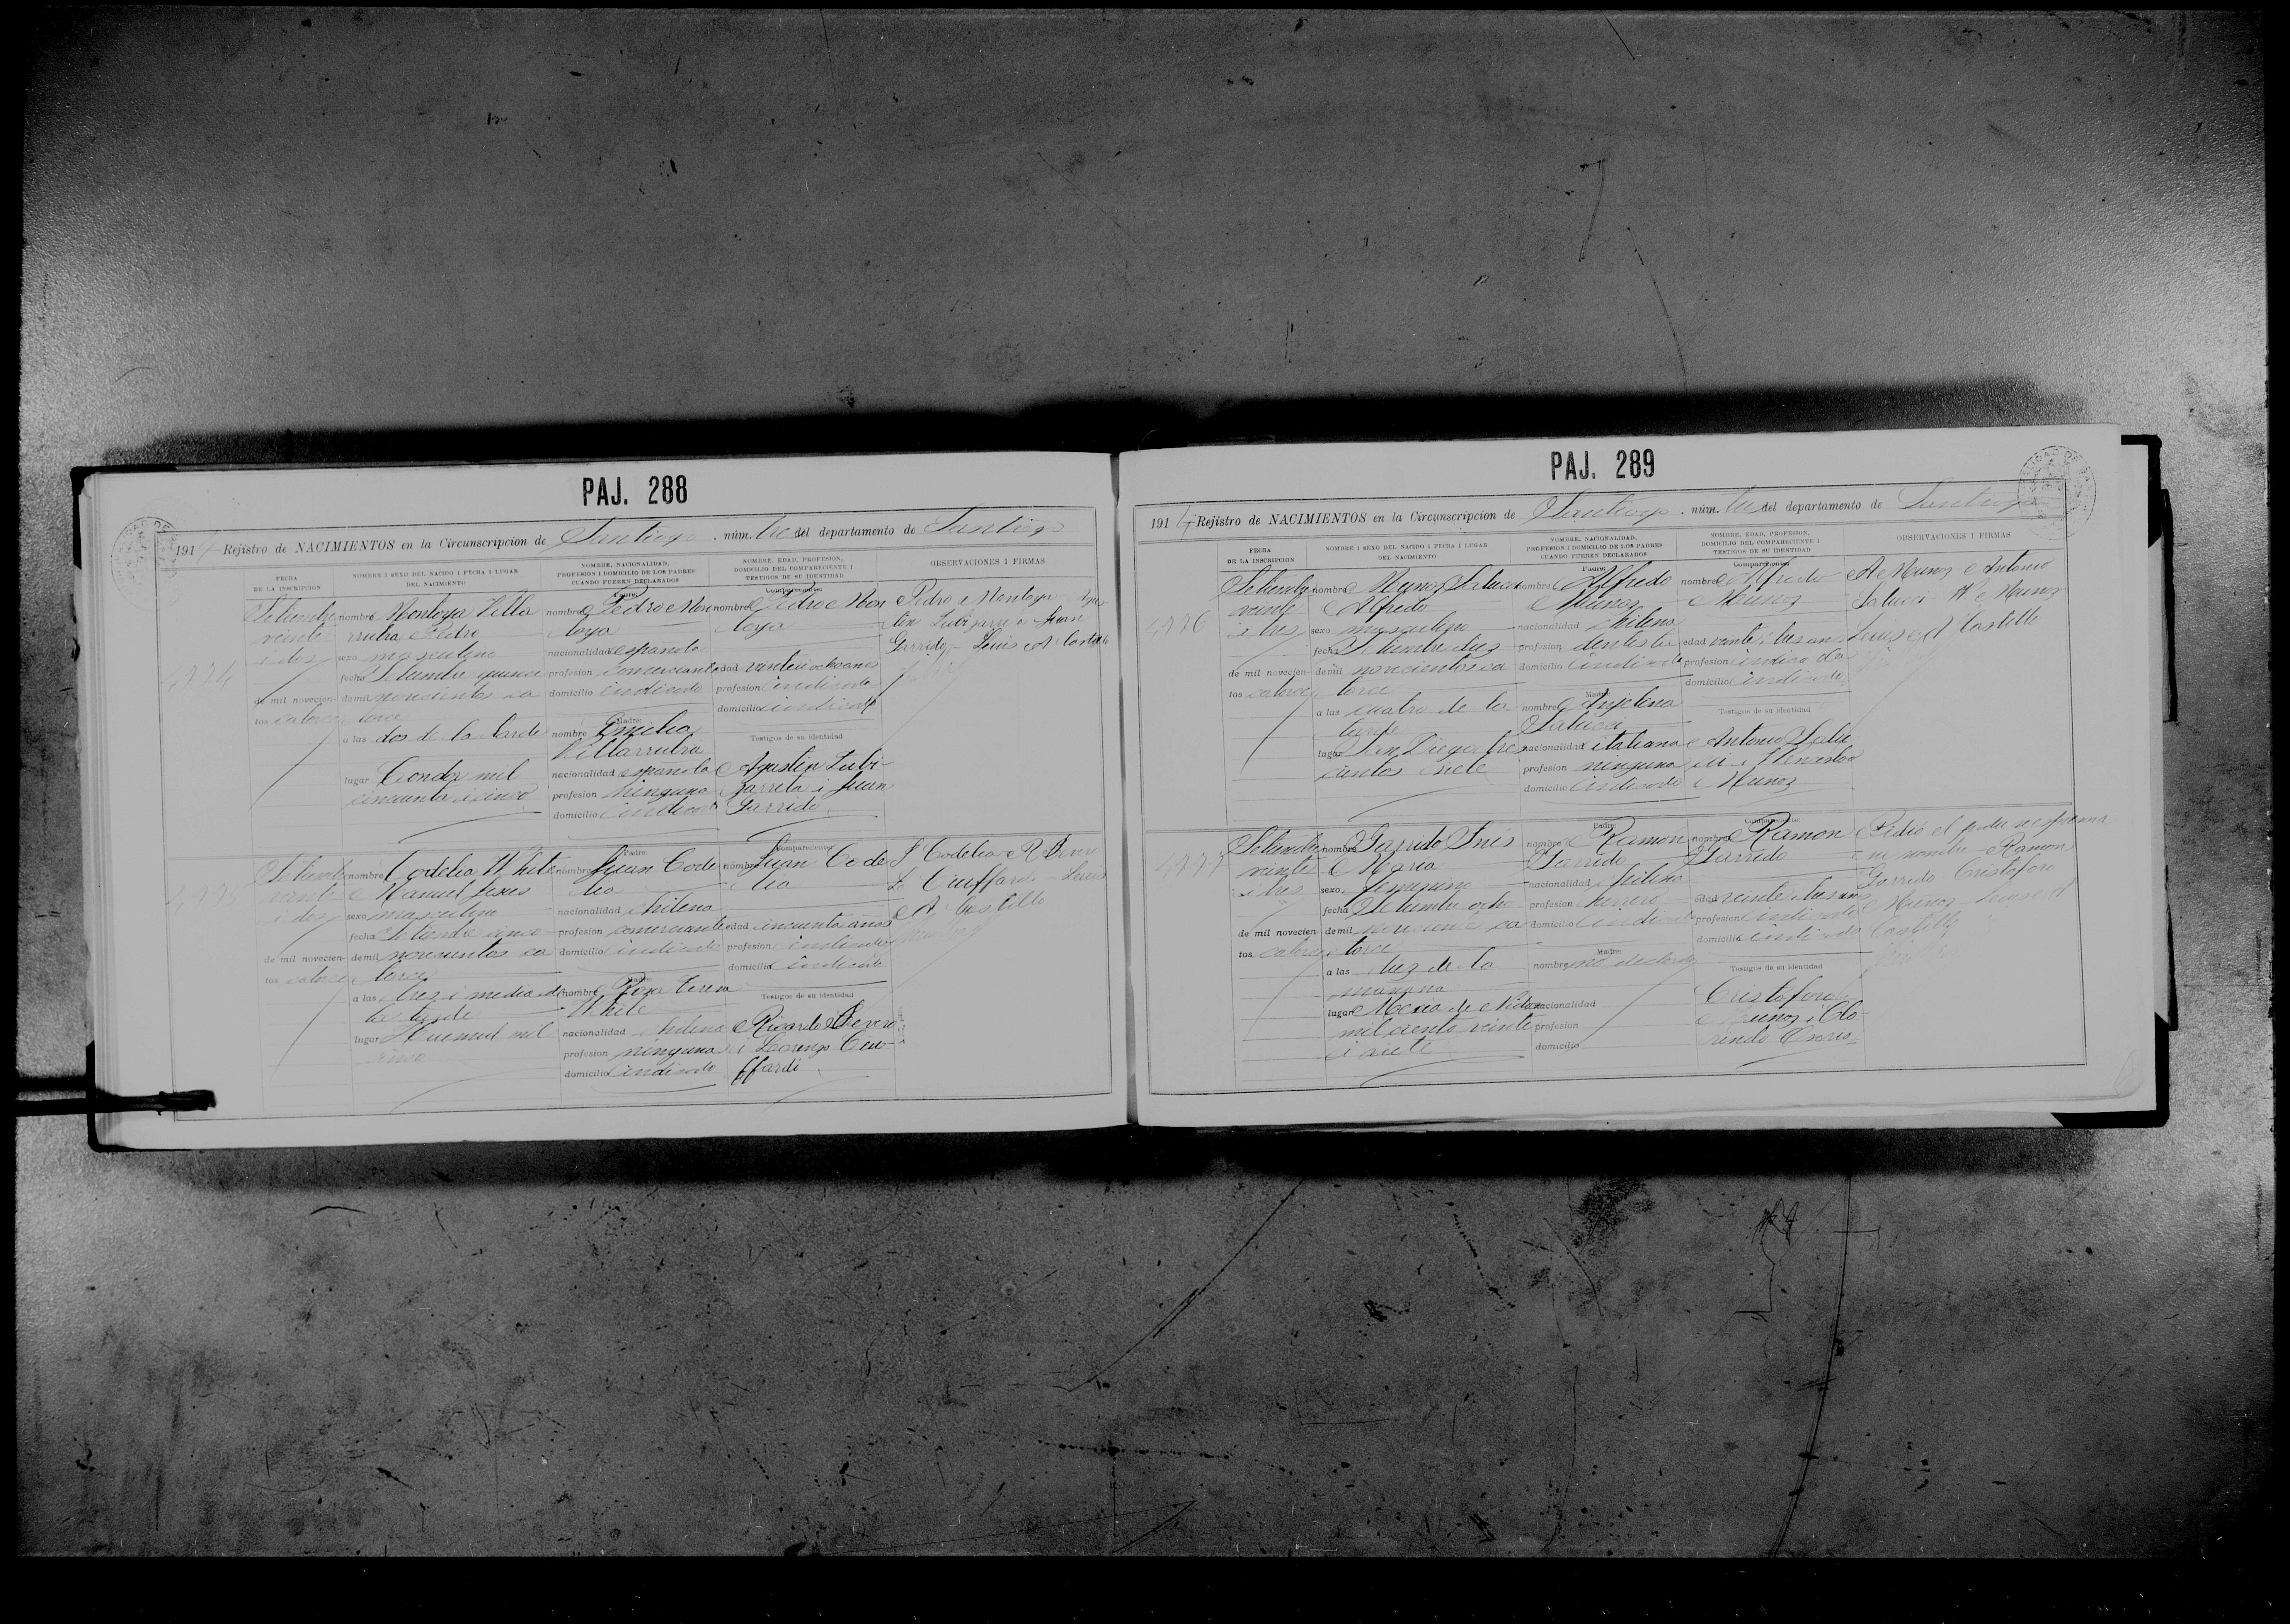 PAJ. 288
1914 Rejistro de NACIMIENTOS en la Circunscripcion de Santiago, núm. tres del departamento de Santiago
FECHA DE LA INSCRIPCION
NOMBRE I SEXO DEL NACIDO I FECHA I LUGAR DEL NACIMIENTO
NOMBRE, NACIONALIDAD, PROFESION I DOMICILIO DE LOS PADRES CUANDO FUEREN DECLARADOS
NOMBRE, EDAD, PROFESION, DOMICILIO DEL COMPARECIENTE I TESTIGOS DE SU IDENTIDAD
OBSERVACIONES I FIRMAS
4774
Setiembre
veinte
i dos
de mil novecien-
tos catorce
nombre Montoya Villa
rrubia Pedro
sexo masculino
fecha Setiembre quince
de mil novecientos ca
torce
a las dos de la tarde
lugar Condor mil
cincuenta i cinco
Padre:
nombre Pedro Mon
toya
nacionalidad española
profesion comerciante
domicilio indicado
Madre:
nombre Emilia
Villarrubia
nacionalidad española
profesion ninguna
domicilio indicado
Compareciente:
nombre Pedro Mon
toya
edad veintiocho años
profesion indicada
domicilio indicado
Testigos de su identidad
Agustin Lubi-
zarreta i Juan
Garrido
Pedro Montoya Agus
tin Lubizarreta Juan
Garrido - Luis A Castillo
4775
Setiembre
veinte
i dos
de mil novecien-
tos catorce
nombre Codelia White
Manuel Jesus
sexo masculino
fecha Setiembre cinco
de mil novecientos ca
torce
a las tres i media de
la tarde
lugar Huemul mil
cinco
Padre:
nombre Juan Code
lia
nacionalidad chilena
profesion comerciante
domicilio indicado
Madre:
nombre Rosa Teresa
White
nacionalidad chilena
profesion ninguna
domicilio indicado
Compareciente:
nombre Juan Code
lia
edad cincuenta años
profesion indicada
domicilio indicado
Testigos de su identidad
Ricardo
i Lorenzo Ciu-
ffardi
J Codelia R
L Ciuffardi - Luis
A Castillo
PAJ. 289
1914 Rejistro de NACIMIENTOS en la Circunscripcion de Santiago, núm. tres del departamento de Santiago
FECHA DE LA INSCRIPCION
NOMBRE I SEXO DEL NACIDO I FECHA I LUGAR DEL NACIMIENTO
NOMBRE, NACIONALIDAD, PROFESION I DOMICILIO DE LOS PADRES CUANDO FUEREN DECLARADOS
NOMBRE, EDAD, PROFESION, DOMICILIO DEL COMPARECIENTE I TESTIGOS DE SU IDENTIDAD
OBSERVACIONES I FIRMAS
4776
Setiembre
veinte
i tres
de mil novecien-
tos catorce
nombre Munoz Salucci
Alfredo
sexo masculino
fecha Setiembre diez
de mil novecientos ca
torce
a las cuatro de la
tarde
lugar San Diego tres
cientos siete
Padre:
nombre Alfredo
Munoz
nacionalidad chilena
profesion dentista
domicilio indicado
Madre:
nombre Anjelina
Salucci
nacionalidad italiana
profesion ninguna
domicilio indicado
Compareciente:
nombre Alfredo
Munoz
edad veinte i tres años
profesion indicada
domicilio indicado
Testigos de su identidad
Antonio Salu
cci i
Munoz
A Munoz Antonio
Salucci H Munoz
Luis A Castillo
4777
Setiembre
veinte
i tres
de mil novecien-
tos catorce
nombre Garrido Inés
Maria
sexo femenino
fecha Setiembre ocho
de mil novecientos ca
torce
a las diez de la
mañana
lugar
mil ciento veinte
i siete
Padre:
nombre Ramon
Garrido
nacionalidad chilena
profesion
domicilio indicado
Madre:
nombre no declarada
nacionalidad
profesion
domicilio
Compareciente:
nombre Ramon
Garrido
edad veinte i tres años
profesion indicada
domicilio indicado
Testigos de su identidad
Cristoforo
Munoz i Flo
rindo Osorio
Pidió el padre se espresara
su nombre - Ramon
Garrido Cristoforo
Munoz
Castillo